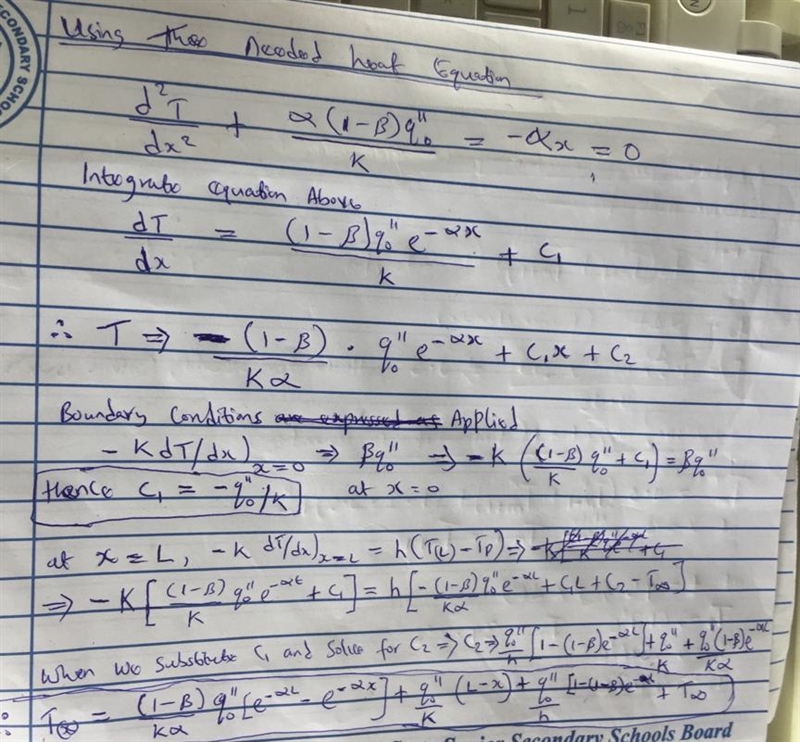 SECONDARY SCHOO
Using Needed heat Equation
d²T/dx² + α(1-β)q₀″/K = -αx = 0
Integrate equation Above
dT/dx = (1-β)q₀″e^{-αx}/K + C₁
∴ T ⇒ -(1-β)/Kα · q₀″e^{-αx} + C₁x + C₂
Boundary Conditions are expressed as Applied
-KdT/dx)x=0 ⇒ βq₀″ ⇒ -K((1-β)/K q₀″ + C₁) = βq₀″
Hence C₁ = -q₀″/K at x=0
at x=L, -K dT/dx)x=L = h(T(L) - ⇒
⇒ -K[(1-β)/K q₀″e^{-αL} + C₁] = h[-(1-β)/Kα q₀″e^{-αL} + C₁L + C₂ - T∞]
When we substitute C₁ and Solve for C₂ ⇒ C₂ ⇒ q₀″/h [1-(1-β)e^{-αL}] + q₀″/K + q₀″(1-β)e^{-αL}/Kα
∴ = (1-β)/Kα q₀″[e^{-αL} - e^{-αx}] + q₀″/K (L-x) + q₀″/h [1-(1-β)e + T∞
Senior Secondary Schools Board